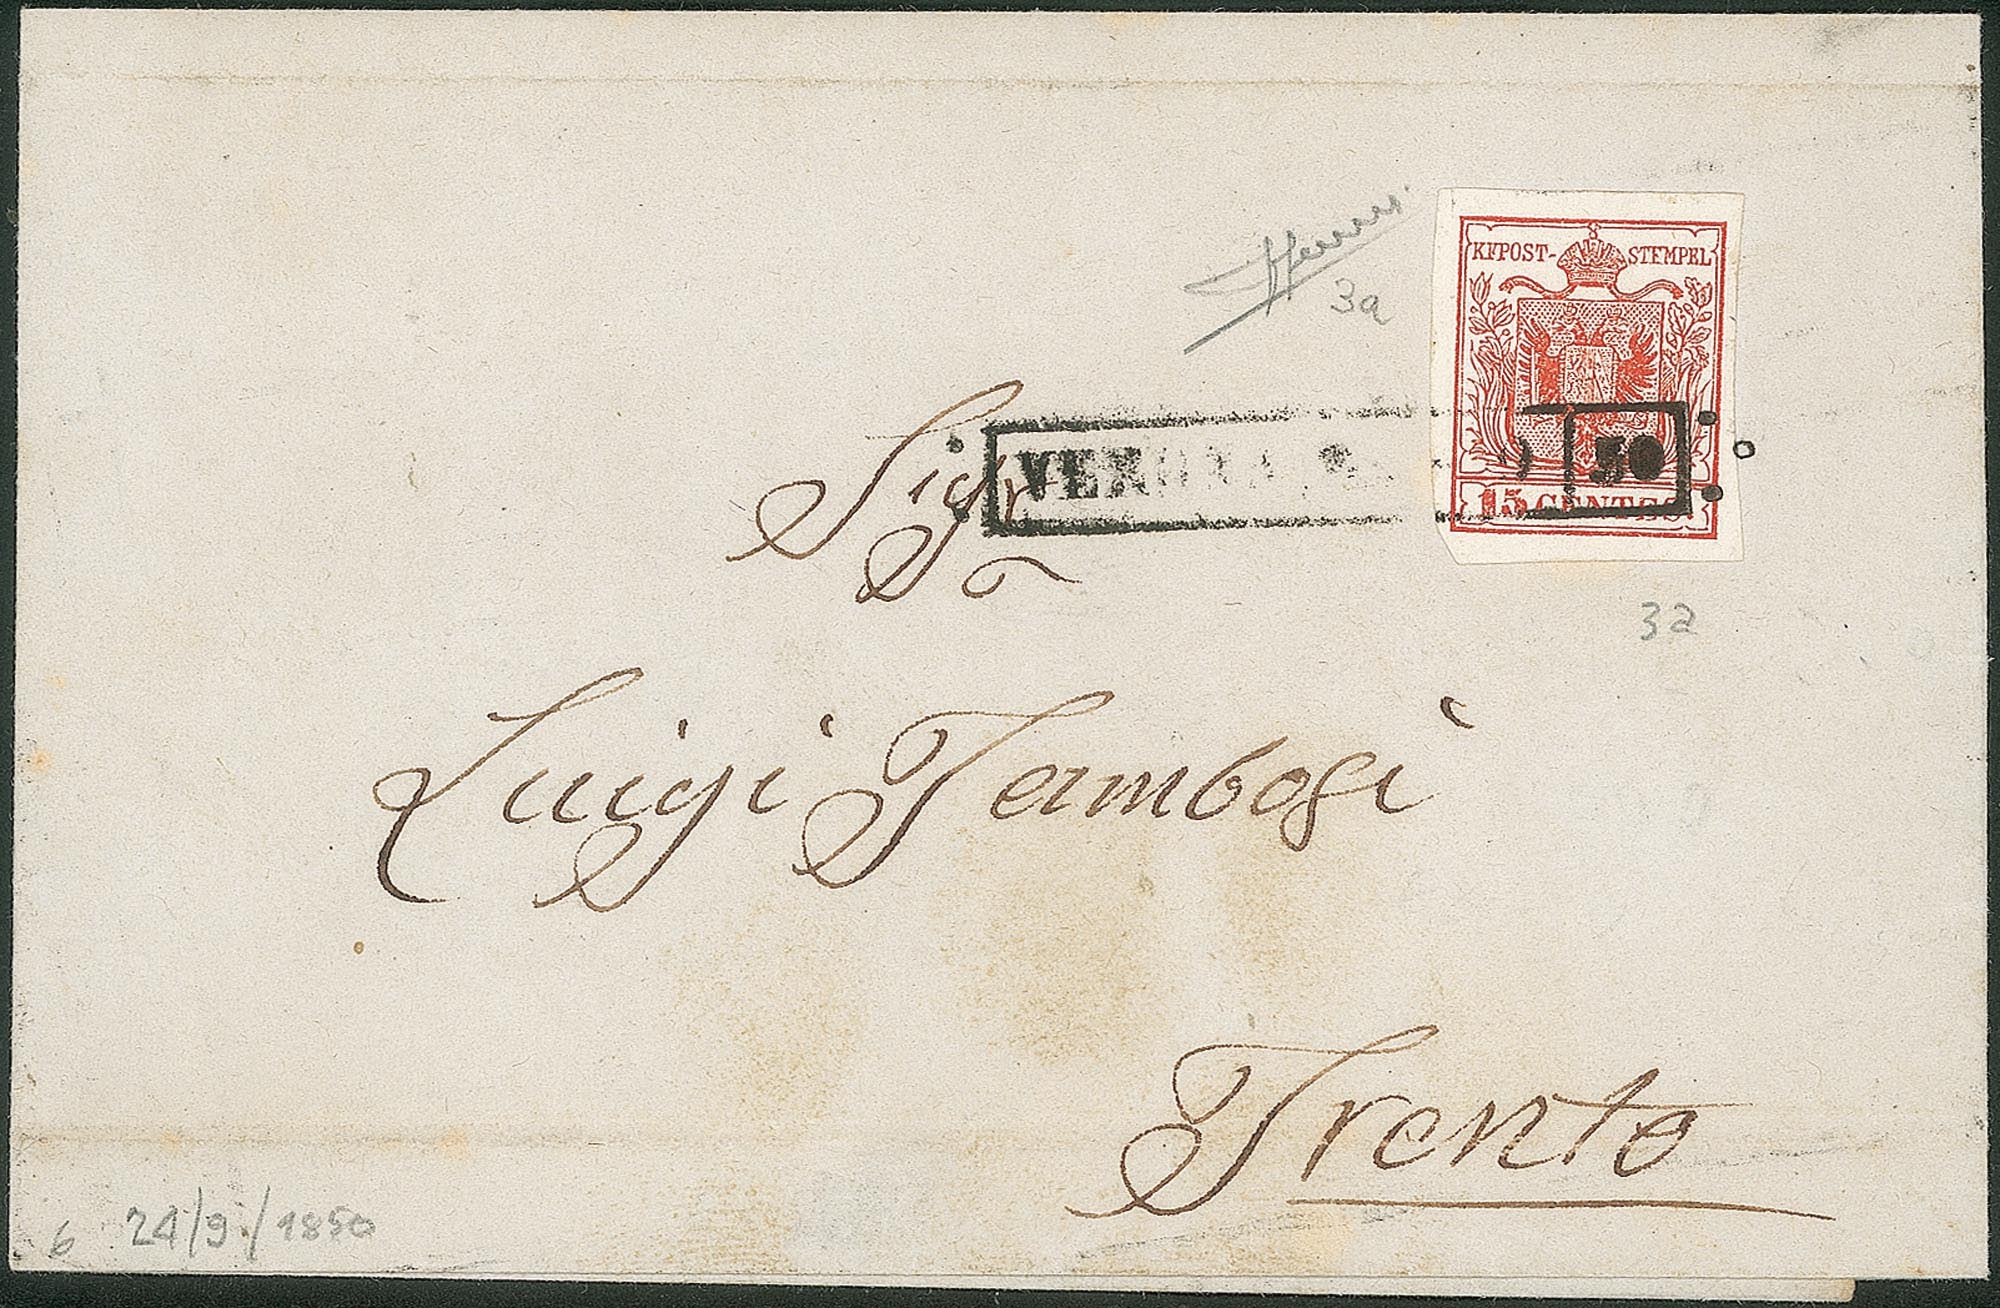 3a
KKPOST-STEMPEL
15 CENTES.
VERONA 50
3a
Sigr
Luigi Tambosi
Trento
6 24/9/1850